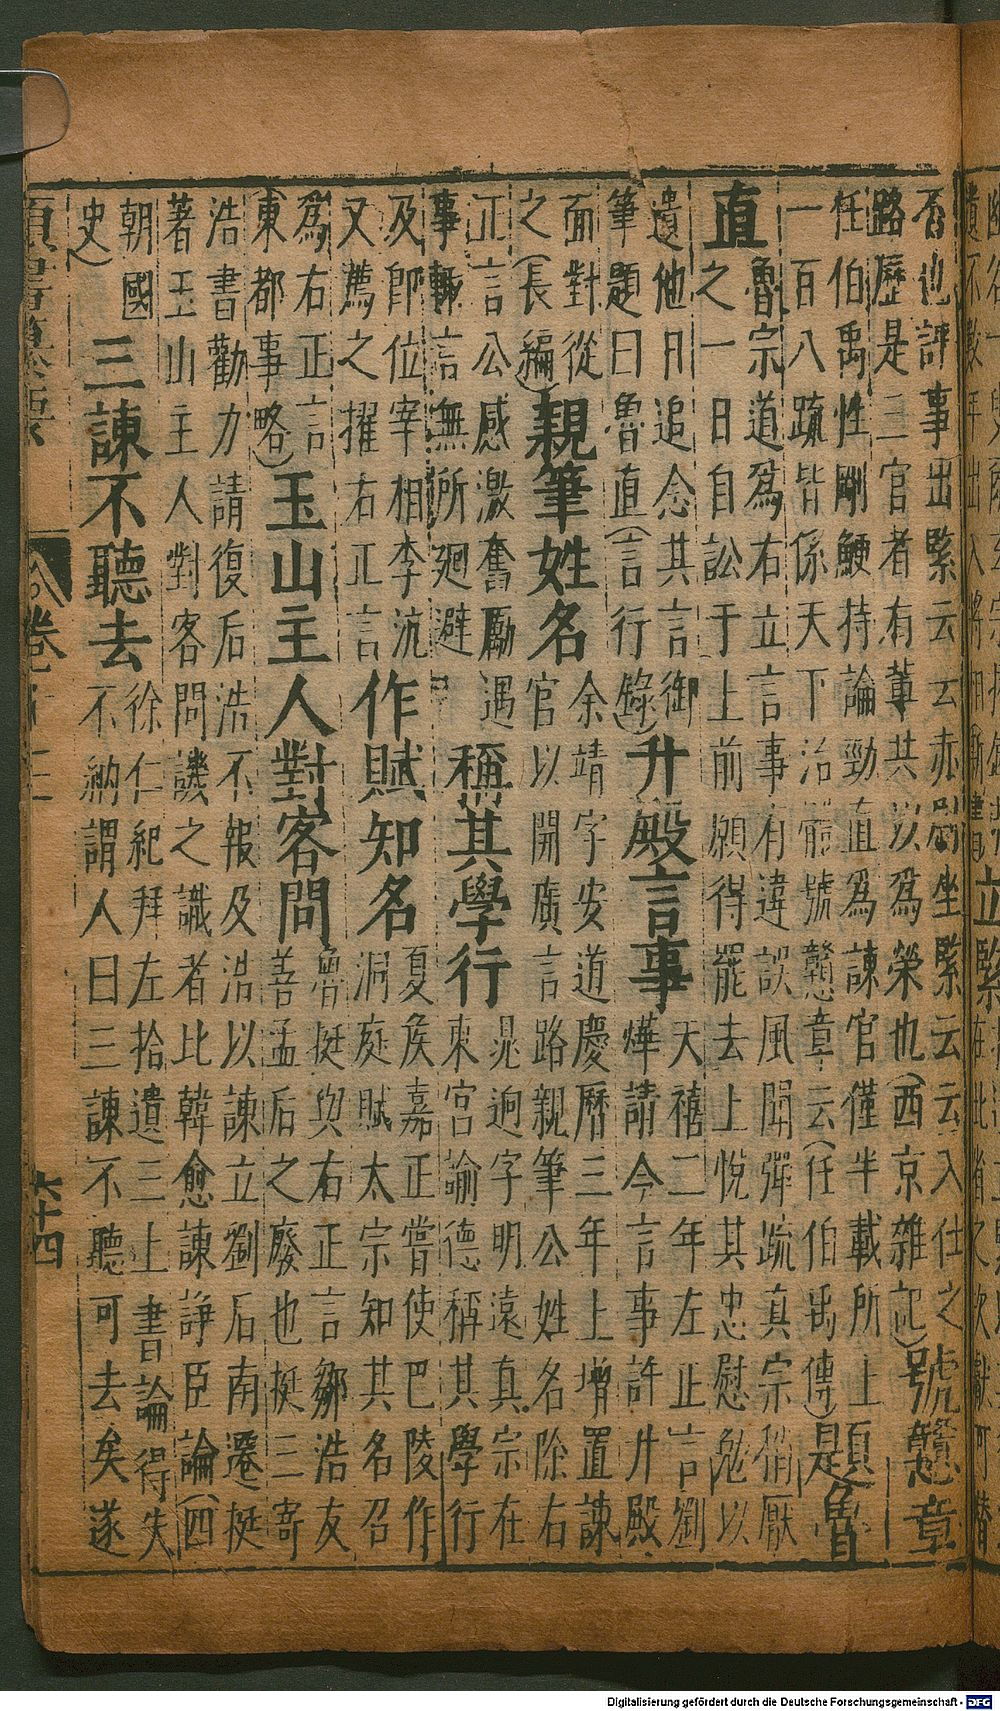 否也評事出緊云云赤尉坐緊云云入仕之
路歷是三官者有藁共以爲榮也(西京雜記)號戇章
任伯禹性剛鯁持論勁直爲諫官僅半載所上
一百八疏皆係天下治體號戇章云(任伯禹傳)題
是魯
直
魯宗道爲右立言事有違誤風聞彈疏真宗稍厭
之一日自訟于上前願得罷去上悅其忠慰勉以
遺他日追念其言御
筆題曰魯直(言行錄)
升殿言事
天禧二年左正言劉
燁請今言事許升殿
面對從
之(長編)
親筆姓名
余靖字安道慶曆三年上增置諫
官以開廣言路親筆公姓名除右
正言公感激奮勵遇
事輒言無所迴避
稱其學行
晁迥字明遠真宗在
東宮諭德稱其學行
及即位宰相李沆
又薦之擢右正言
作賦知名
夏侯嘉正嘗使巴陵作
洞庭賦太宗知其名召
爲右正言
東都事略)
玉山主人對客問
魯挺與右正言鄒浩友
善孟后之廢也挺三寄
浩書勸力請復后浩不報及浩以諫立劉后南遷挺
著玉山主人對客問譏之識者比韓愈諫諍臣論(四
朝國
史)
三諫不聽去
徐仁紀拜左拾遺三上書論得失
不納謂人曰三諫不聽可去矣遂
卷
六十四
Digitalisierung gefördert durch die Deutsche Forschungsgemeinschaft - DFG